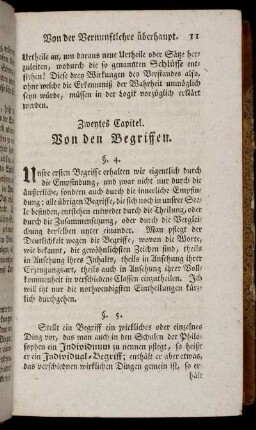 Von der Vernunftlehre überhaupt. 11
Urtheile an, um daraus neue Urtheile oder Sätze her-
zuleiten, wodurch die so genannten Schlüsse ent-
stehen! Diese drey Wirkungen des Verstandes also,
ohne welche die Erkenntniß der Wahrheit unmöglich
seyn würde, müssen in der Logik vorzüglich erklärt
werden.
Zweytes Capitel.
Von den Begriffen.
§. 4.
Unsre ersten Begriffe erhalten wir eigentlich durch
die Empfindung, und zwar nicht nur durch die
äusserliche, sondern auch durch die innerliche Empfin-
dung; alle übrigen Begriffe, die sich noch in unsrer See-
le befinden, entstehen entweder durch die Theilung, oder
durch die Zusammensetzung, oder durch die Verglei-
chung derselben unter einander. Man pflegt der
Deutlichkeit wegen die Begriffe, wovon die Worte,
wie bekannt, die gewöhnlichsten Zeichen sind, theils
in Ansehung ihres Inhalts, theils in Ansehung ihrer
Erzeugungsart, theils auch in Ansehung ihrer Voll-
kommenheit in verschiedene Classen einzutheilen. Ich
will itzt nur die nothwendigsten Eintheilungen kürz-
lich durchgehen.
§. 5.
Stellt ein Begriff ein wirkliches oder einzelnes
Ding vor, das man auch in den Schulen der Philo-
sophen ein Individuum zu nennen pflegt, so heißt
er ein Individual-Begriff; enthält er aber etwas,
das verschiednen wirklichen Dingen gemein ist, so er-
hält